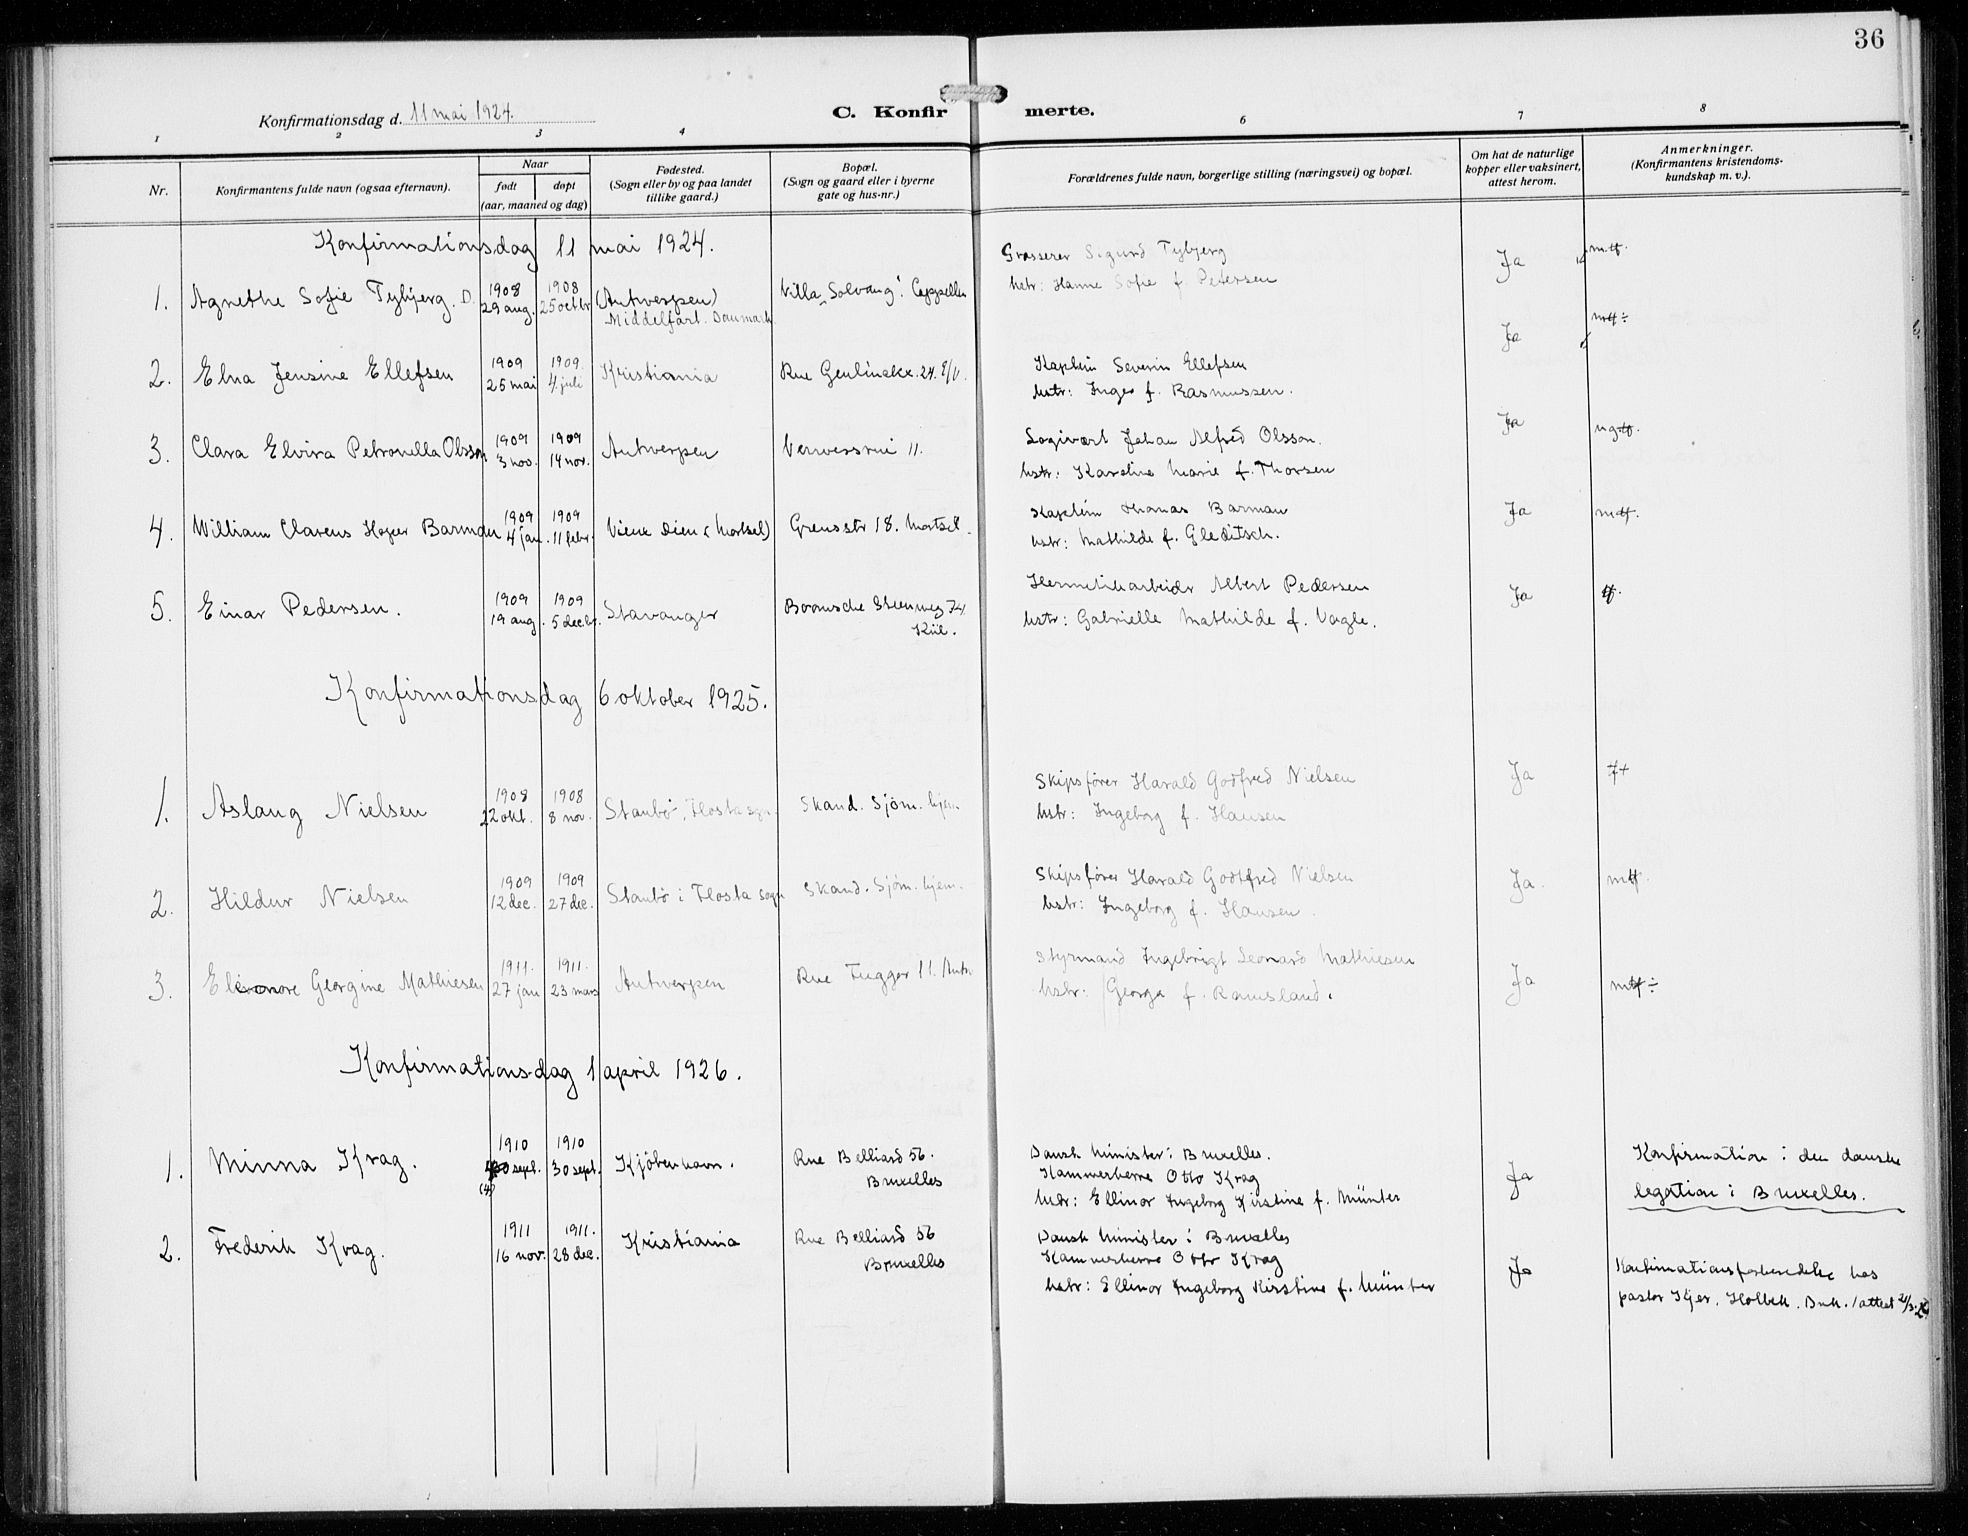 36
Konfirmationsdag d. 11 mai 1924.
C. Konfirmerte.
1 2 3 4 6 7 8
Nr.
Konfirmantens fulde navn (ogsaa efternavn).
Naar
født døpt
(aar, maaned og dag)
Fødested.
(Sogn eller by og paa landet
tillike gaard.)
Bopæl.
(Sogn og gaard eller i byerne
gate og hus-nr.)
Forældrenes fulde navn, borgerlige stilling (næringsvei) og bopæl.
Om hat de naturlige
kopper eller vaksinert,
attest herom.
Anmerkninger.
(Konfirmantens kristendoms-
kundskap m. v.).
Konfirmationsdag 11 mai 1924.
1. Agnethe Sofie Tybjerg. D. 1908 29 aug. 1908 25 octbr (Antwerpen) Middelfart. Danmark. Villa "Solvang". Cappellen
Grosserer Sigurd Tybjerg
hstr: Hanne Sofie f. Petersen
Ja
2. Elna Jensine Ellefsen 1909 25 mai 1909. 4 juli Kristiania Rue Geulinckx. 24.
Kaptein Severin Ellefsen
hstr: Inger f. Rasmussen.
Ja
3. Clara Elvira Petronella Olsson 1909 3 nov. 1909 14 nov. Antwerpen Verversrui 11.
Logivært Johan Alfred Olsson.
hstr: Karoline Marie f. Thorsen
Ja
4. William Clarens Hoyer Barman 1909 4 jan. 1909 11 febr. Vieux Dieu (Mortsel) Grensstr 18. Mortsel.
Kaptein Thomas Barman
hstr: Mathilde f. Gleditsch.
Ja
5. Einar Pedersen. 1909 19 aug. 1909 5 decbr. Stavanger Boomsche Steenweg 74 Kiel.
Hermetikarbeider Albert Pedersen
hstr: Gabrielle Mathilde f. Vagle.
Ja
Konfirmationsdag 6 oktober 1925.
1. Aslaug Nielsen 1908 22 okt. 1908 8 nov. Staubö, Flosta sogn Skand. Sjöm. hjem.
Skipsfører Harald Godfred Nielsen
hstr: Ingeborg f. Hansen
Ja
2. Hildur Nielsen 1909 12 dec. 1909 27 dec. Staubö i Flosta sogn Skand. Sjöm. hjem.
Skipsfører Harald Godtfred Nielsen
hstr: Ingeborg f. Hansen.
Ja.
3. Elinore Georgine Mathiesen 1911. 27 jan 1911. 23 mars Antwerpen Rue Fugger 11. Antw.
Styrmand Ingebrigt Leonard Mathiesen
hstr: Georga f. Ramsland.
Ja
Konfirmationsdag 1 april 1926.
1. Minna Krag. 1910 sept. (4) 1910 30 sept. Kjöbenhavn. Rue Belliard 56. Bruxelles
Dansk Minister i Bruxelles.
Kammerherre Otto Krag
hstr: Ellinor Ingeborg Kirstine f. Münter
Ja
Konfirmation i den danske
legation i Bruxelles.
2. Frederik Krag. 1911 16 nov. 1911. 28 dec. Kristiania Rue Belliard 56 Bruxelles
Dansk Minister i Bruxelles
Kammerherre Otto Krag
hstr: Ellinor Ingeborg Kirstine f. Münter
Ja
Konfirmationsforberedelse hos
pastor Kjer, Holbek.